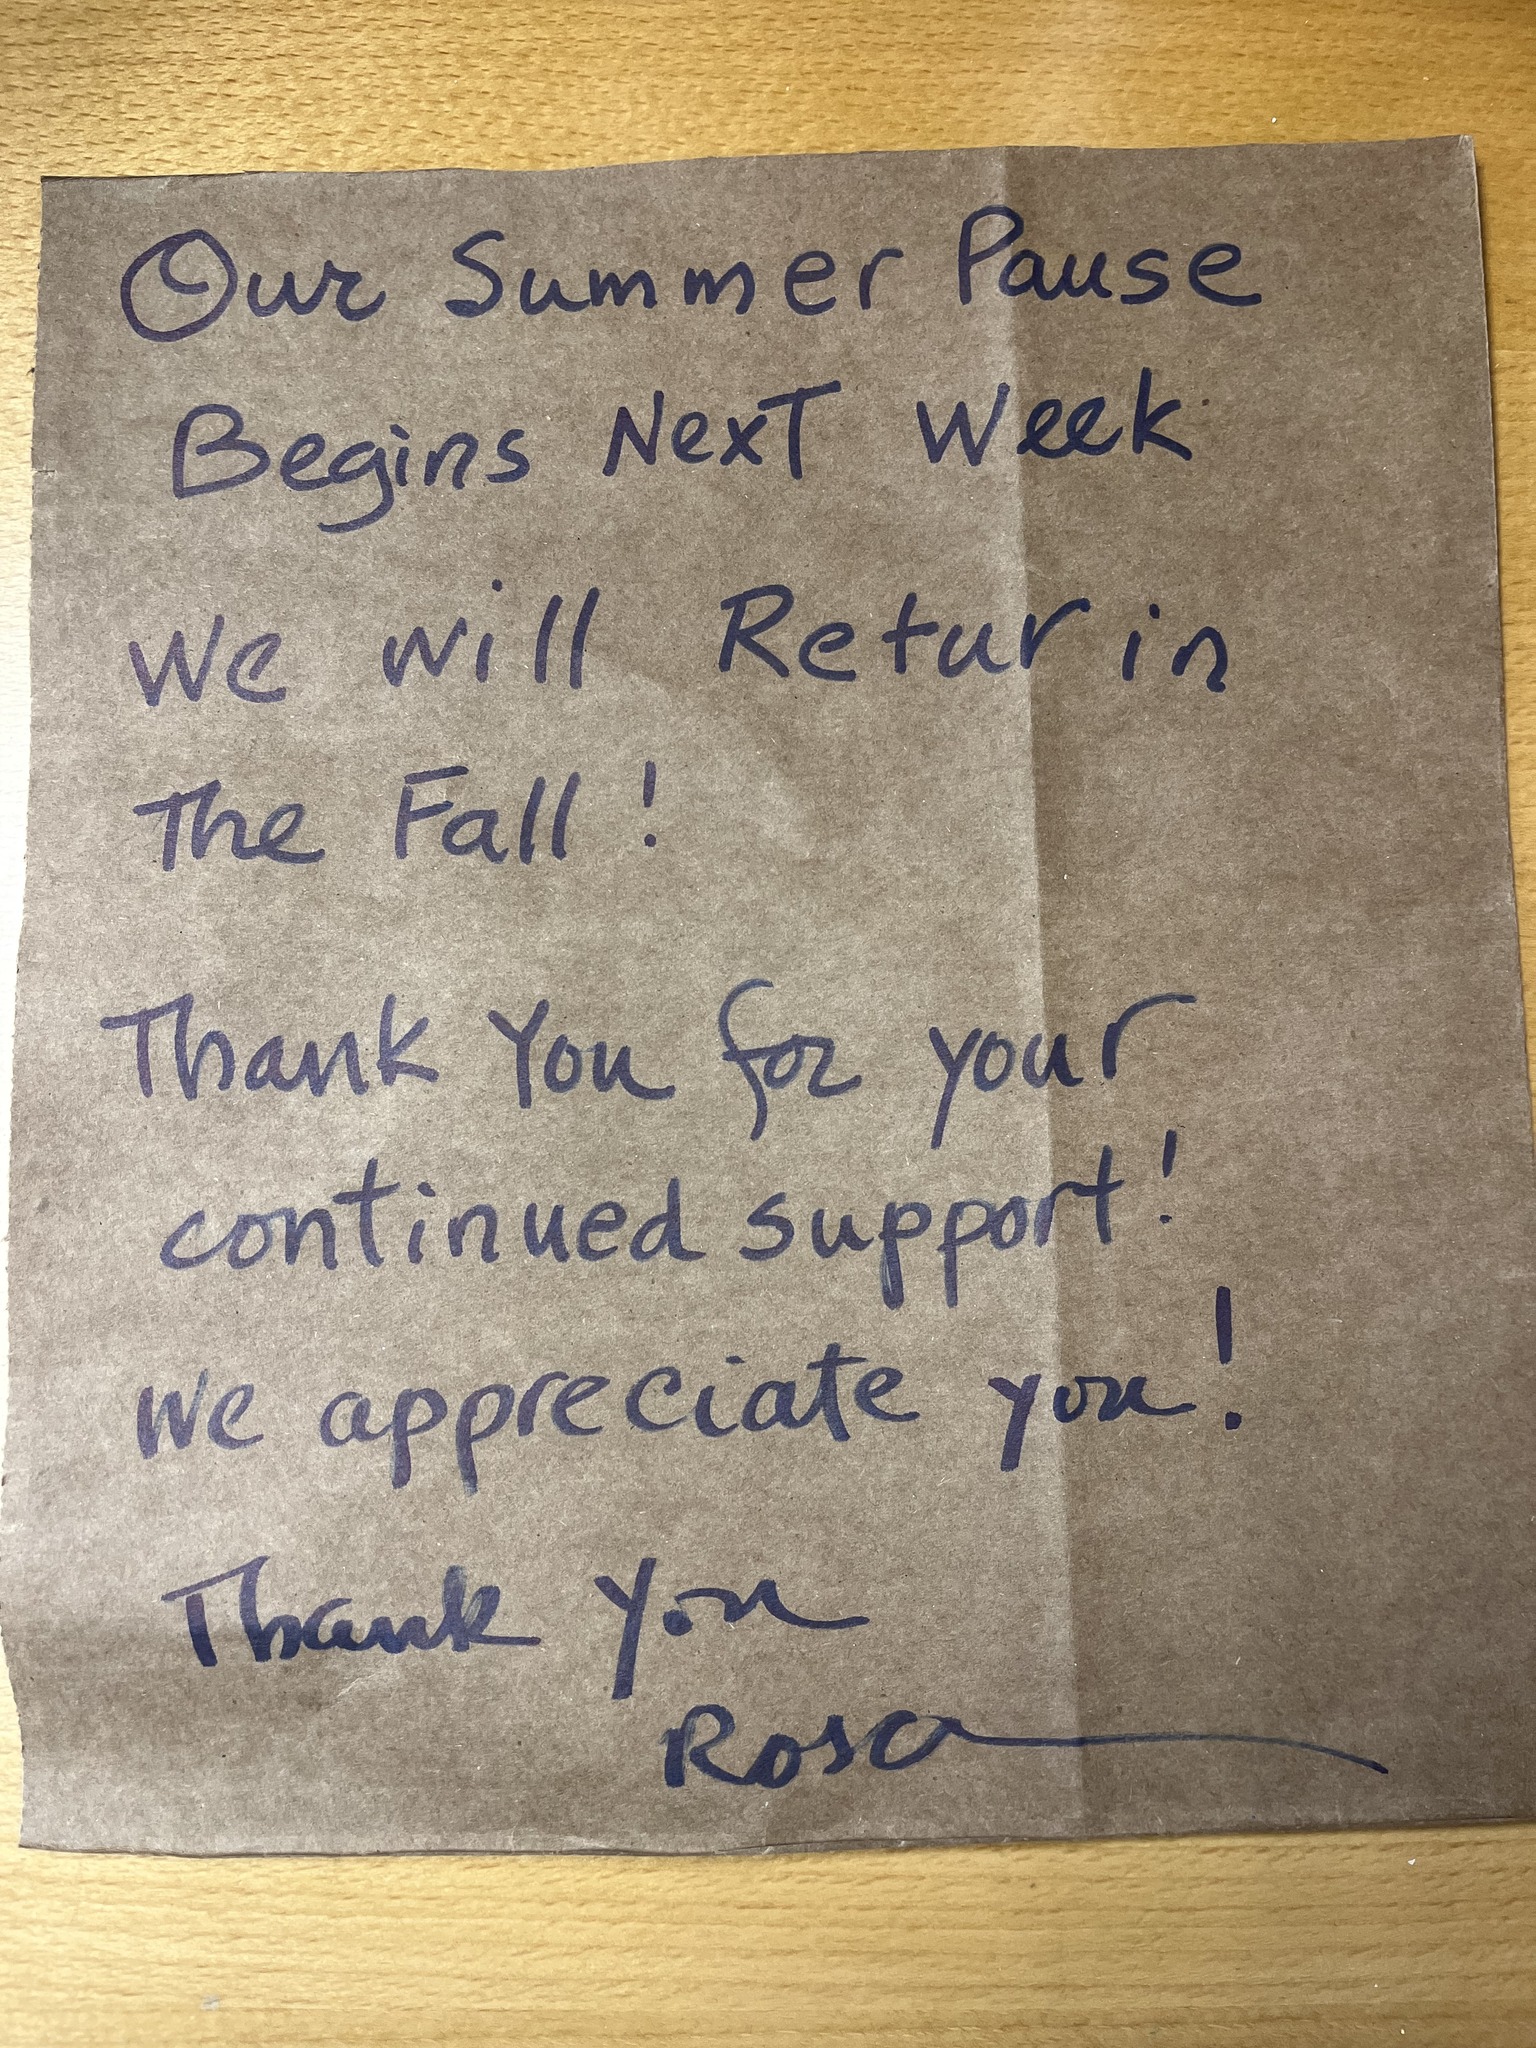 Our Summer Pause
Begins Next Week
We will Retur in
The Fall!
Thank You for your
continued support!
We appreciate you!
Thank you
Rosa